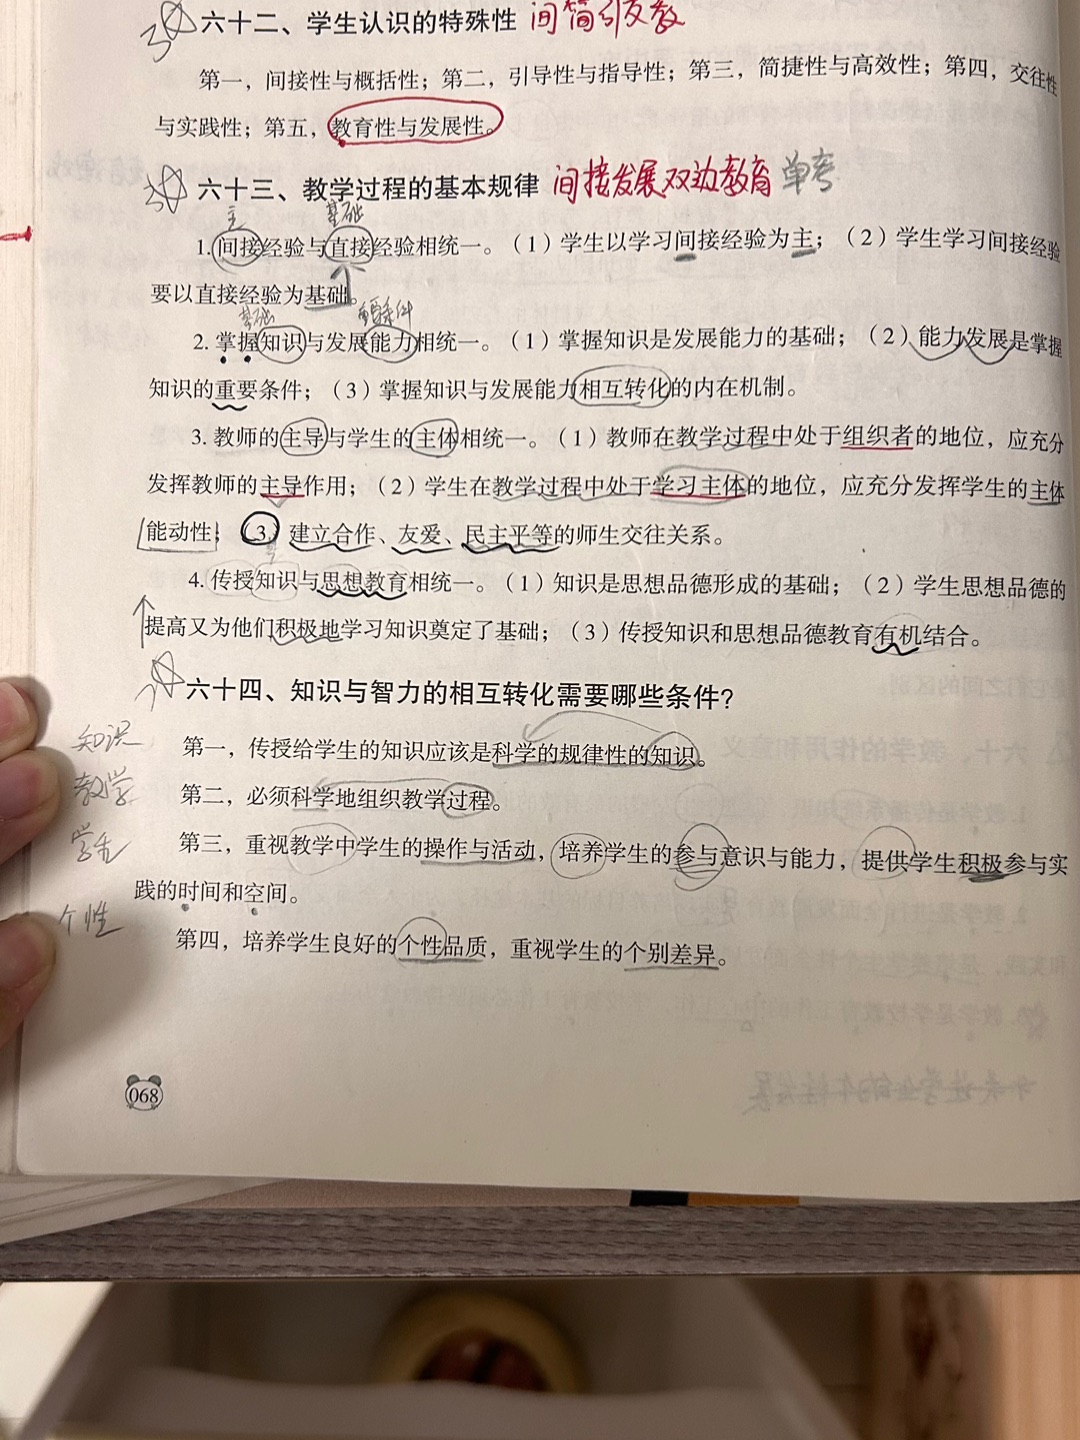 六十二、学生认识的特殊性 间简引交教
第一，间接性与概括性；第二，引导性与指导性；第三，简捷性与高效性；第四，交往性
与实践性；第五，教育性与发展性。
六十三、教学过程的基本规律 间接发展双边教育 单考
主 基础
1. 间接经验与直接经验相统一。（1）学生以学习间接经验为主；（2）学生学习间接经验
要以直接经验为基础。
基础 重要条件
2. 掌握知识与发展能力相统一。（1）掌握知识是发展能力的基础；（2）能力发展是掌握
知识的重要条件；（3）掌握知识与发展能力相互转化的内在机制。
3. 教师的主导与学生的主体相统一。（1）教师在教学过程中处于组织者的地位，应充分
发挥教师的主导作用；（2）学生在教学过程中处于学习主体的地位，应充分发挥学生的主体
能动性；（3）建立合作、友爱、民主平等的师生交往关系。
4. 传授知识与思想教育相统一。（1）知识是思想品德形成的基础；（2）学生思想品德的
提高又为他们积极地学习知识奠定了基础；（3）传授知识和思想品德教育有机结合。
六十四、知识与智力的相互转化需要哪些条件？
知识 第一，传授给学生的知识应该是科学的规律性的知识。
教学 第二，必须科学地组织教学过程。
学生 第三，重视教学中学生的操作与活动，培养学生的参与意识与能力，提供学生积极参与实
践的时间和空间。
个性 第四，培养学生良好的个性品质，重视学生的个别差异。
068